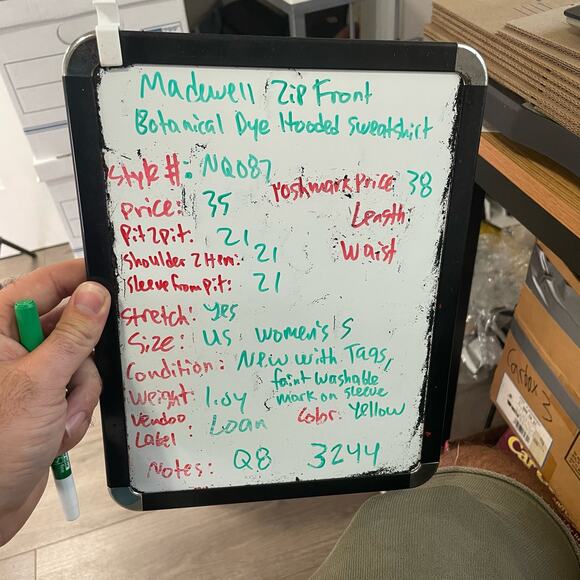 Madewell Zip Front
Botanical Dye Hooded Sweatshirt
Style #: NQ087
Poshmark Price 38
Price: 35
Length:
Pit 2 pit: 21
Waist
Shoulder 2 Hem: 21
Sleeve from pit: 21
Stretch: Yes
Size: US Women's S
Condition: New with Tags,
faint washable
mark on sleeve
Weight: 1.04
Color: Yellow
Vendoo
Label: Loan
Notes: Q8 3244
Carbox 3